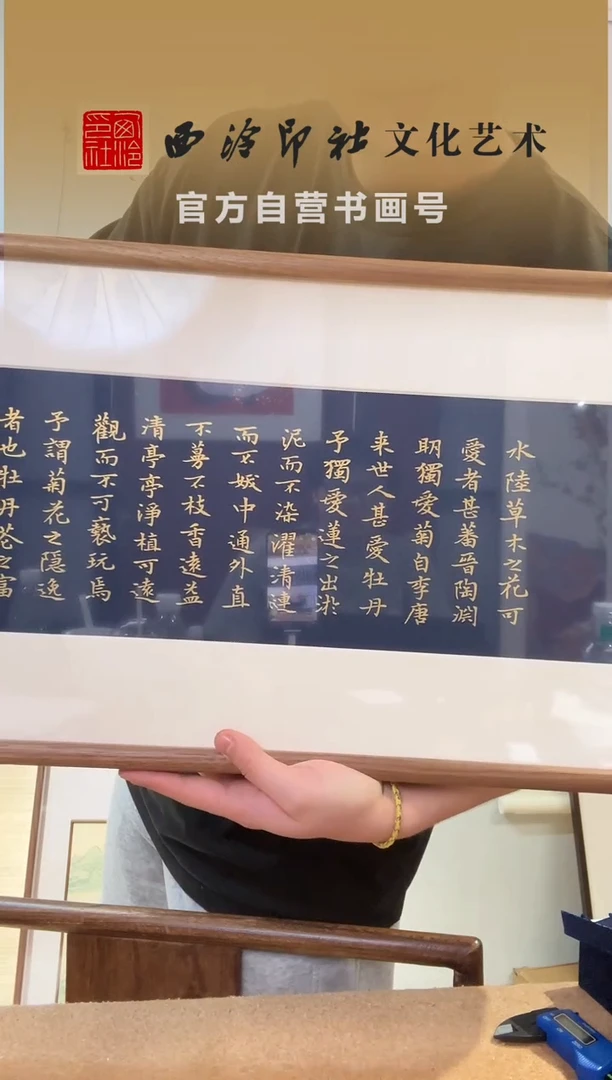 西泠印社
西泠印社文化艺术
官方自营书画号
水陸草木之花可
愛者甚蕃晉陶淵
眀獨愛菊自李唐
来世人甚愛牡丹
予獨愛蓮之出淤
泥而不染濯清漣
而不妖中通外直
不蔓不枝香遠益
清亭亭淨植可遠
觀而不可褻玩焉
予謂菊花之隱逸
者也牡丹花之富